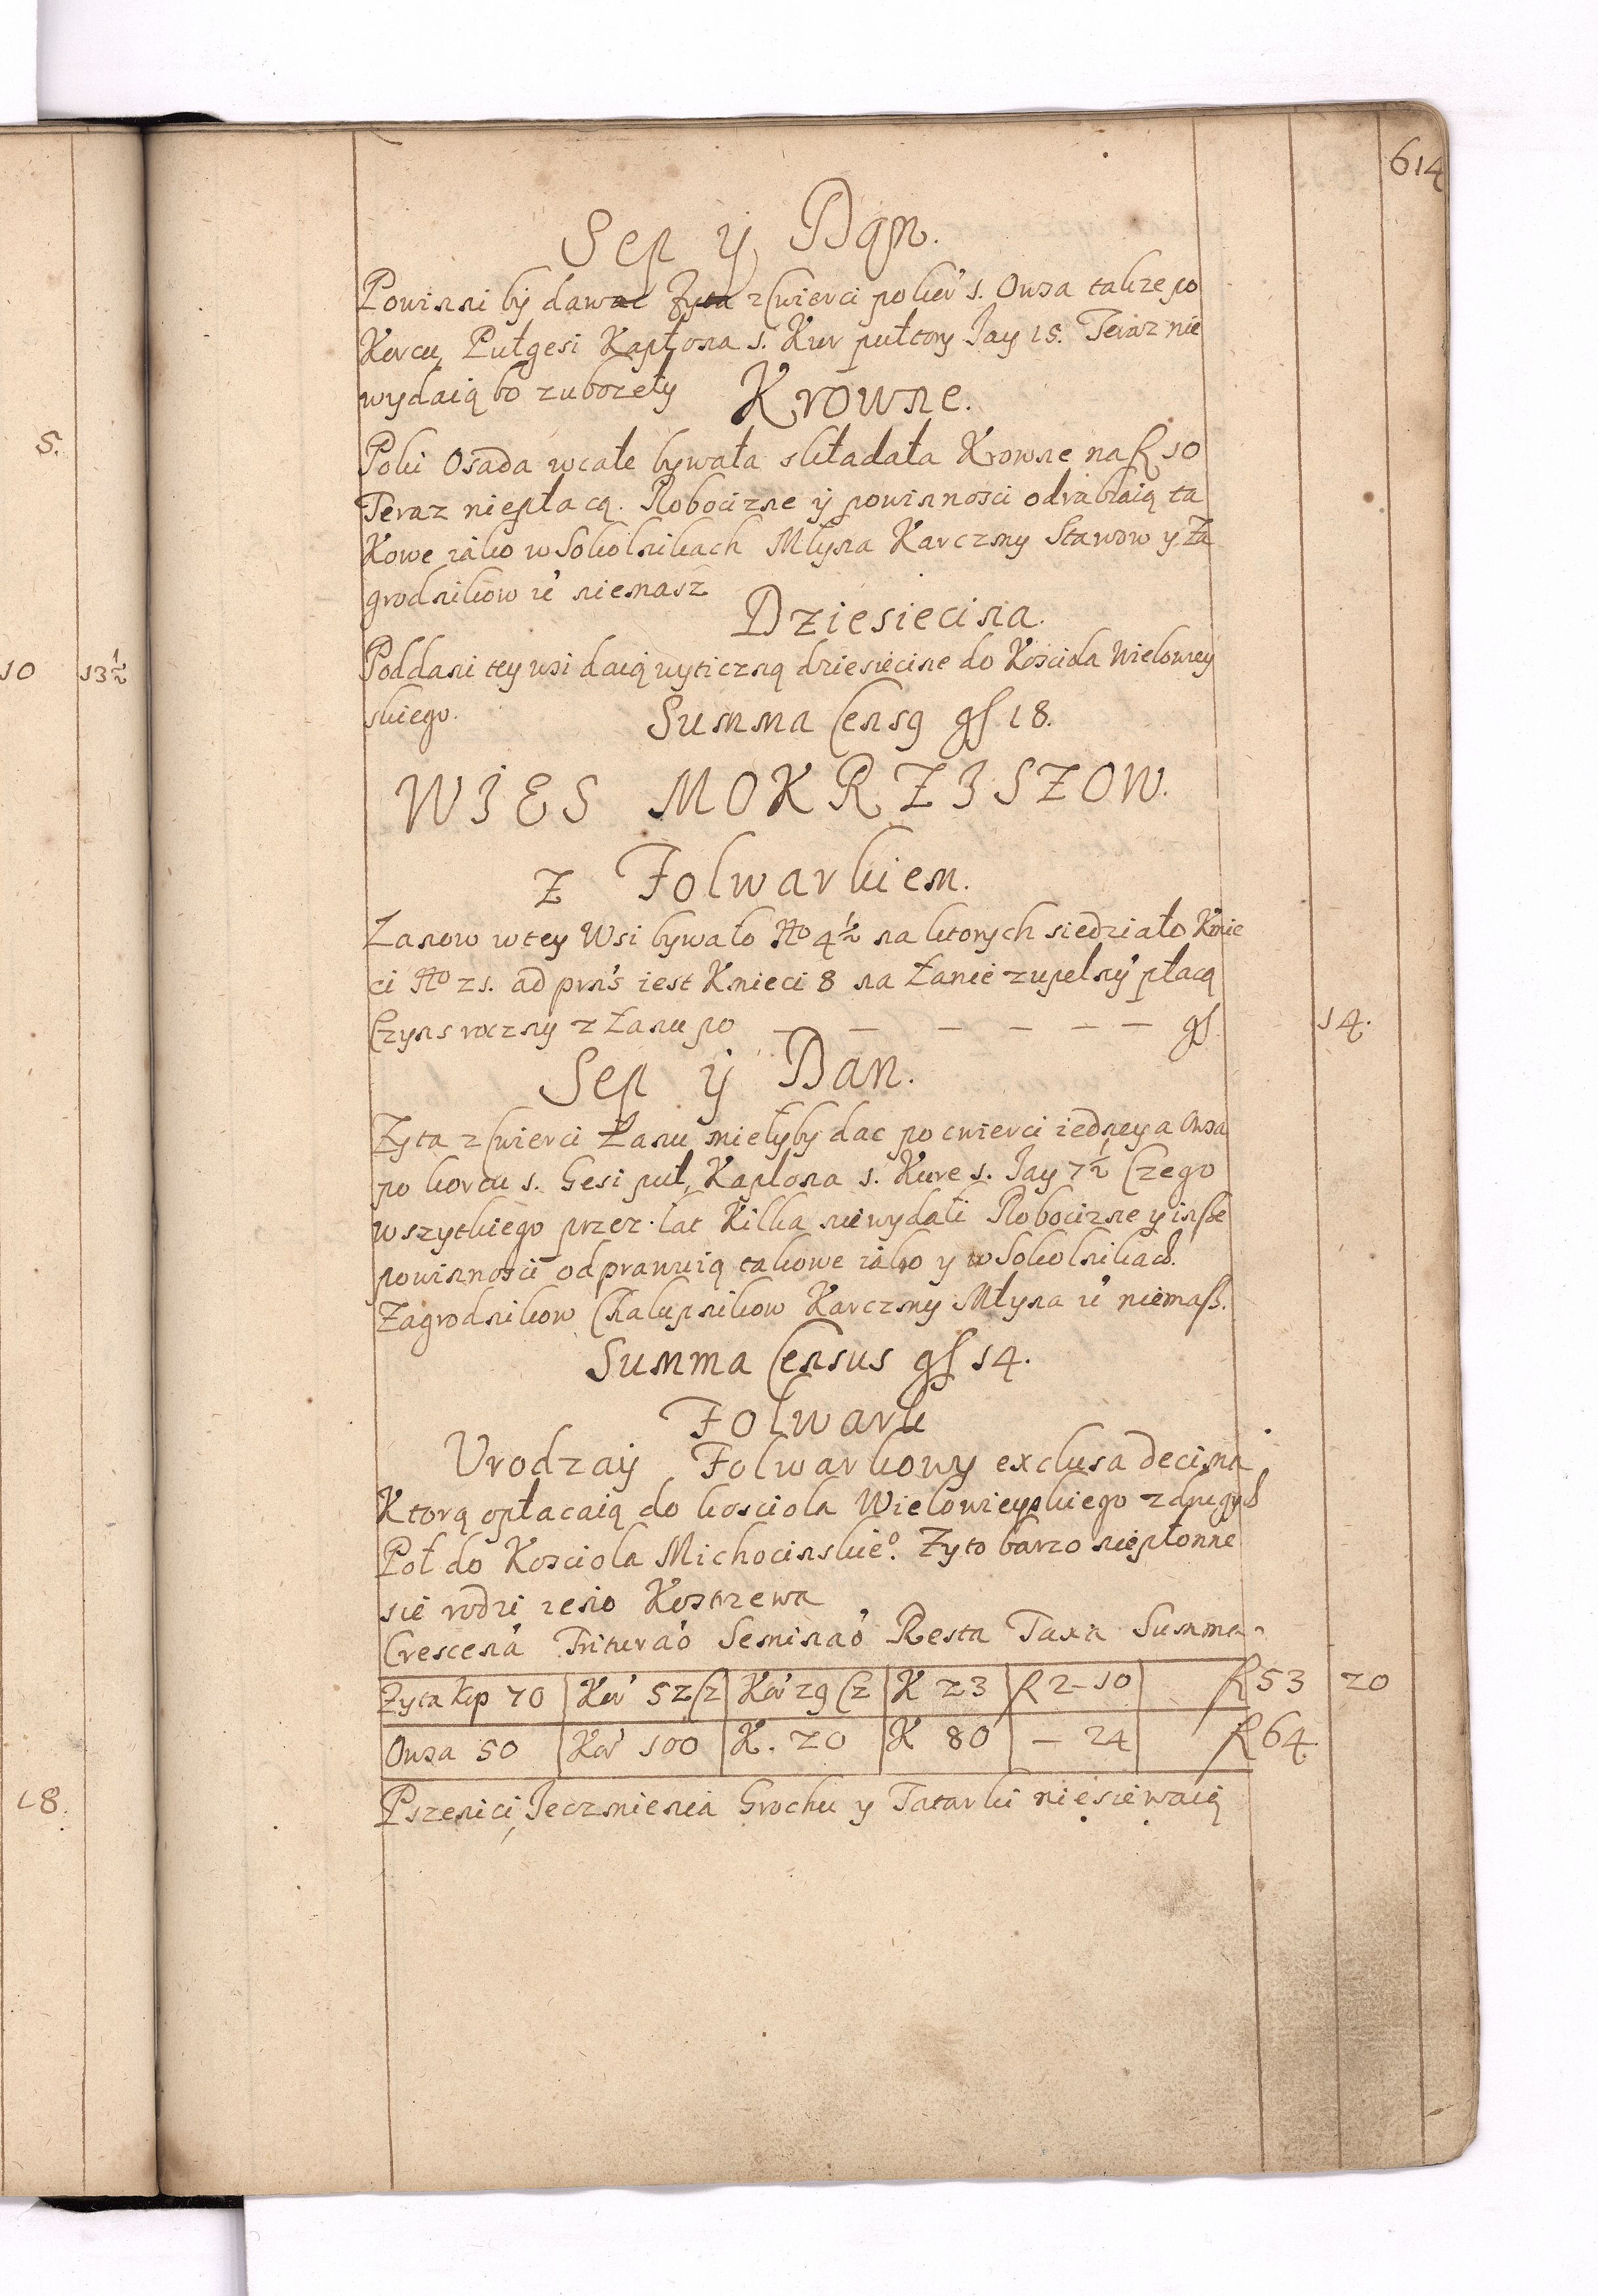 614
Sep y Dań.
Powinni by dawac Zyta z Cwierci po kor' 1. Owsa takze po
Korcu, Pułgesi Kapłona 1. Kur pułtory Jay 15. Teraz nie
wydaią bo zubozeły Krowne.
Poki Osada wcale bywała składała Krowne na fl 10
Teraz niepłacą. Robocizne y powinnosci odrabiaią ta
Kowe iako w Sokolnikach Młyna Karczmy Stawow y Za
grodnikow u' niemasz
Dziesiecina.
Poddani tey wsi daią wyticzną dziesiecine do Kosciola Wielowiey
skiego.
Summa Censq gſ 18.
WIES MOKRZISZOW.
Z Folwarkiem.
Łanow w tey Wsi bywało No 4½ na ktorych siedziało Kmie
ci No 21. ad prns iest Kmieci 8 na Łanie zupelny' płacą
Czyns roczny z Łanu po — — — — — — gſ. 14.
Sep y Dan.
Zyta z Cwierci Łanu miełyby dac po cwierci iedney a Owsa
po korcu 1. Gesi puł, Kaplona 1. Kure 1. Jay 7½ Czego
wszytkiego przez lat Kilka niewydali Robocizne y insze
powinnosci odprawuią takowe iako y w Sokolnikach.
Zagrodnikow Chalupnikow Karczmy Młyna u' niemaſz.
Summa Census gſ 14.
Folwark
Urodzay Folwarkowy exclusa decima
Ktorą opłacaią do kosciola Wielowieyskiego z drugych
Pol do Kosciola Michocinskieº. Zyto barzo niepłonne
sie rodzi ieno Kostrzewa
Crescena' Triturao' Seminao' Resta Taxa Summa
Zyta kop 70 Kor' 52 Cz Kor' 29 Cz K 23 fl 2–10 fl 53 20
Owsa 50 Kor' 100 K. 20 K 80 – 24 fl 64
Pszenici, Jeczmienia Grochu y Tatarki niesiewaią
5.
10 13½
18.